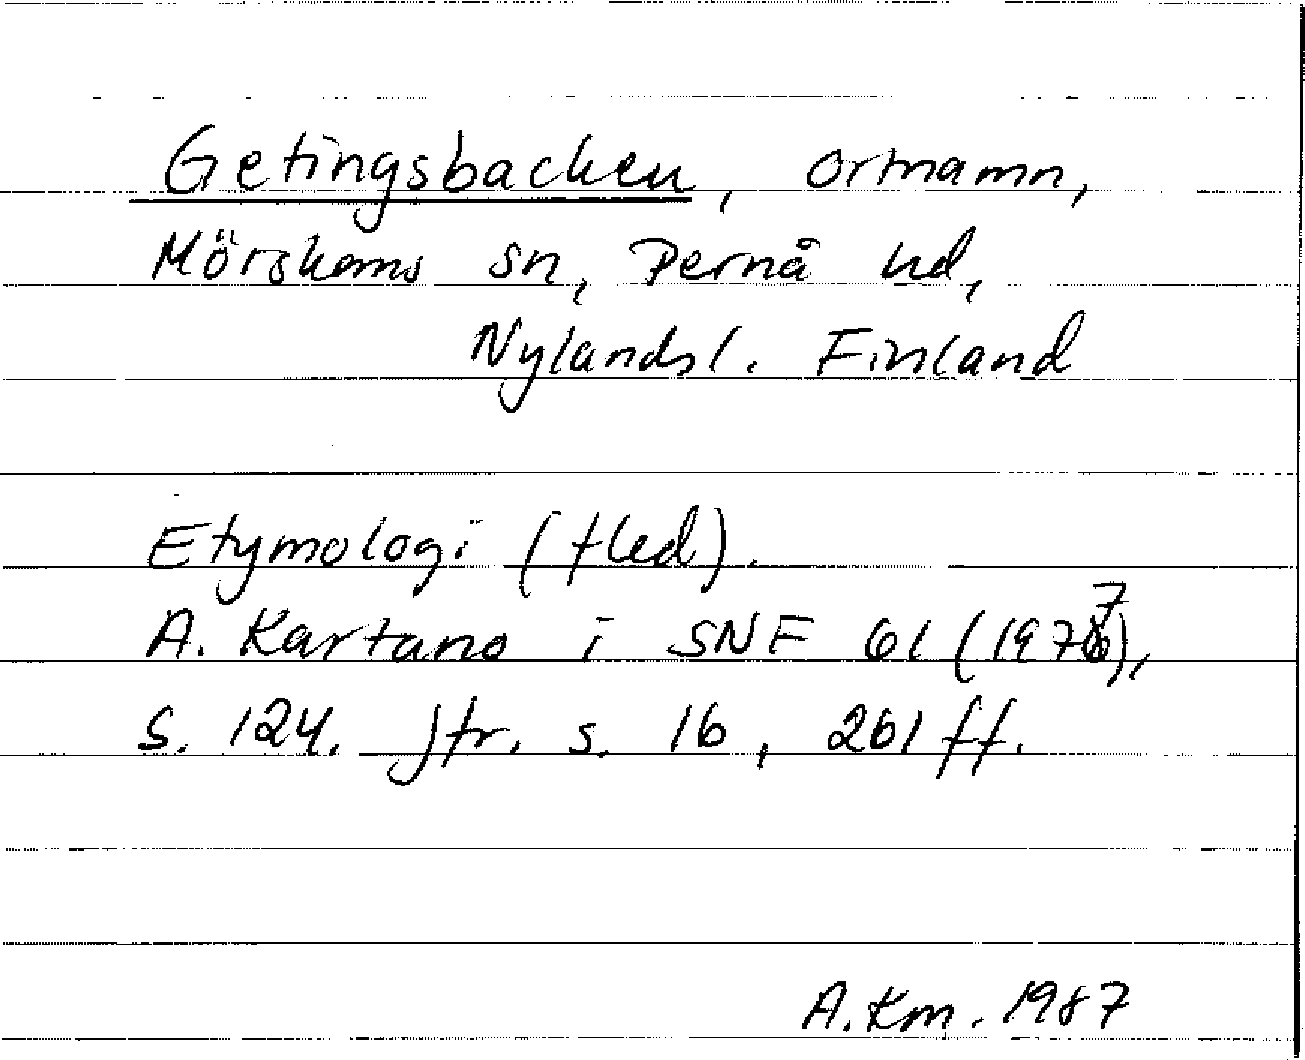 Getingsbacken, ortnamn,
Mörskoms sn, Pernå hd,
Nylandsl. Finland
Etymologi (fled).
A. Kartano i SNF 61 (1977),
s. 124. Jfr. s. 16, 261 ff.
A. Km. 1987